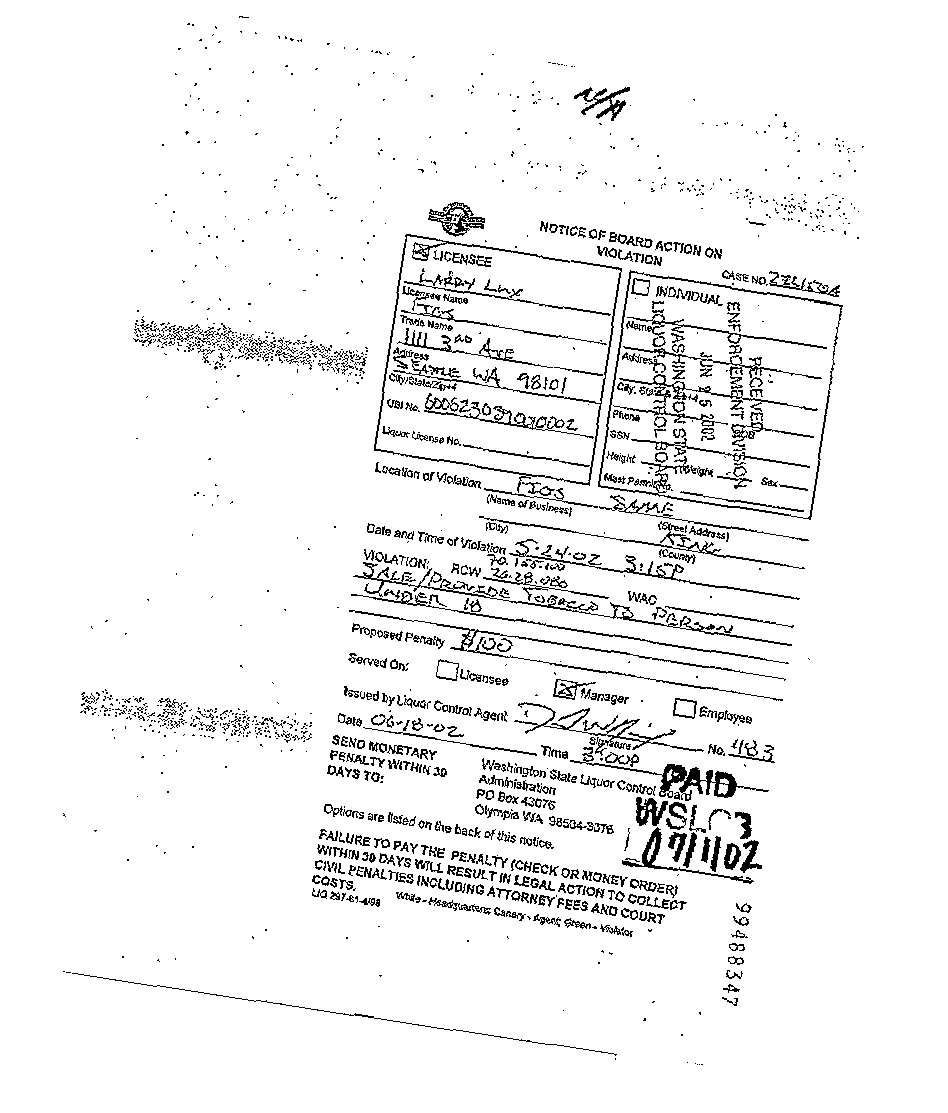 NOTICE OF BOARD ACTION ON
VIOLATION
CASE NO.
LICENSEE
LARRY LUX
Licensee Name
FIGS
Trade Name
1111 3RD AVE
Address
SEATTLE WA 98101
City/State/Zip+4
UBI No.
Liquor License No.
INDIVIDUAL
Name
Address
City, State, Zip+4
Phone
SSN
Height Weight Sex
Mast Permit No.
RECEIVED
JUN 25 2002
ENFORCEMENT DIVISION
WASHINGTON STATE
LIQUOR CONTROL BOARD
Location of Violation FIGS SAME
(Name of Business) (Street Address)
KING
(City) (County)
Date and Time of Violation 5-24-02 3:15P
70.155.100
VIOLATION: RCW 26.28.080 WAC
SALE/PROVIDE TOBACCO TO PERSON
UNDER 18
Proposed Penalty $100
Served On: Licensee Manager Employee
Issued by Liquor Control Agent No. 483
Signature
Date 06-18-02 Time 3:00P
SEND MONETARY
PENALTY WITHIN 30
DAYS TO:
Washington State Liquor Control Board
Administration
PO Box 43076
Olympia WA 98504-3076
PAID
WSLCB
07/1/02
Options are listed on the back of this notice.
FAILURE TO PAY THE PENALTY (CHECK OR MONEY ORDER)
WITHIN 30 DAYS WILL RESULT IN LEGAL ACTION TO COLLECT
CIVIL PENALTIES INCLUDING ATTORNEY FEES AND COURT
COSTS.
LIQ 297-61-4/98 White - Headquarters; Canary - Agent; Green - Violator
99488347